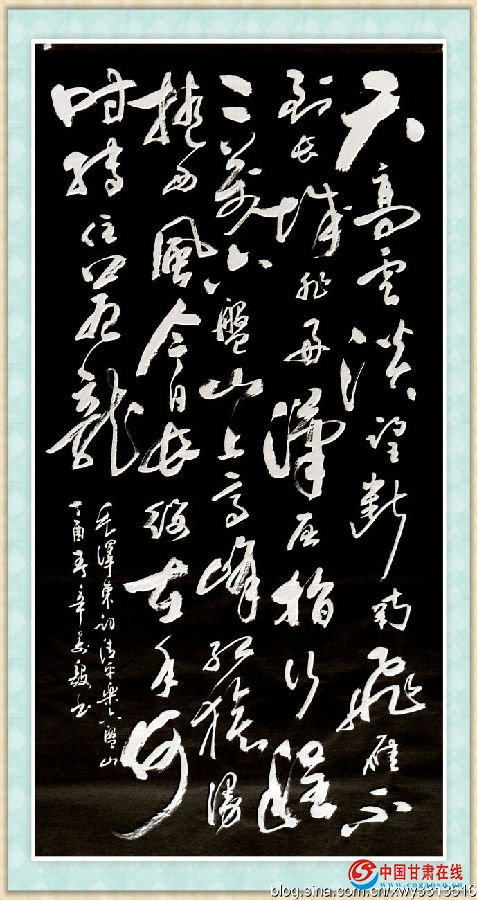 天高雲淡望斷南飛雁不
到长城非好漢屈指行程
二萬六盤山上高峰紅旗漫
捲西風今日长纓在手何
時縛住蒼龍
毛澤東詞清平樂六盤山
丁酉春辛书
中国甘肃在线
www.cngansu.cn
blog.sina.com.cn/xwy3313516